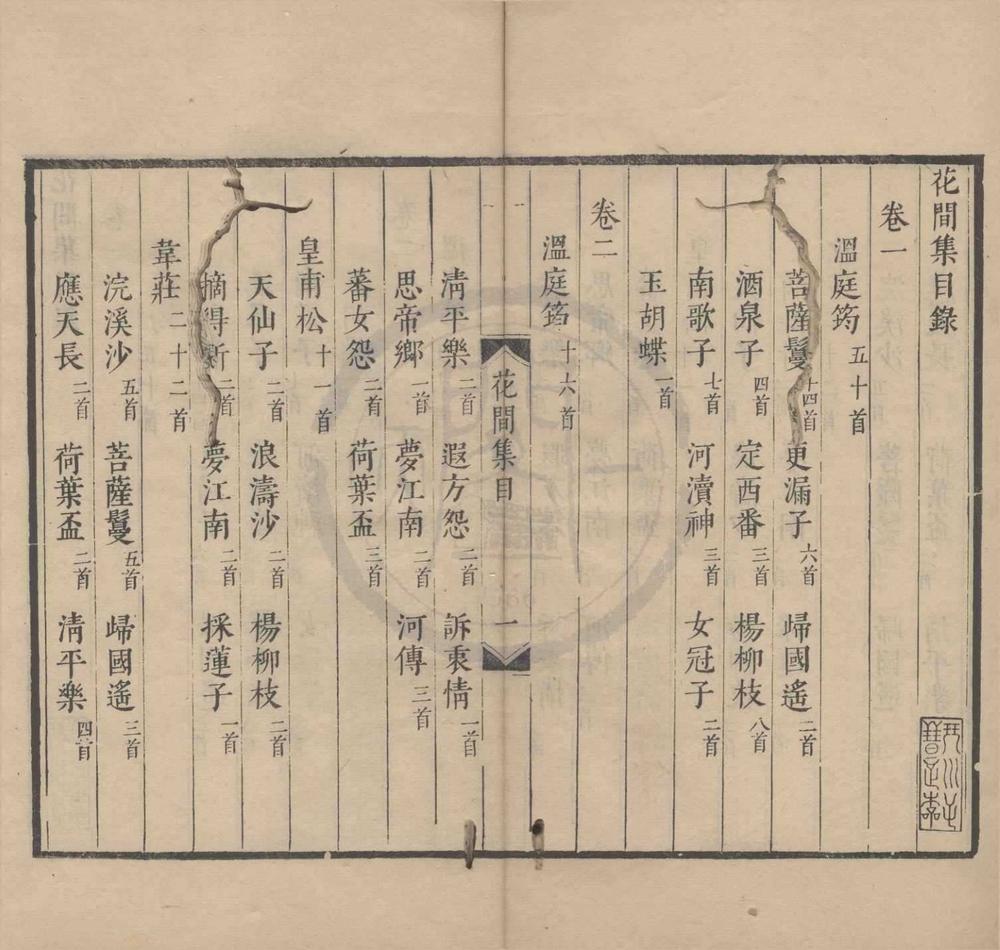 花間集目錄
卷一
溫庭筠五十首
菩薩鬘十四首 更漏子六首 歸國遙二首
酒泉子四首 定西番三首 楊柳枝八首
南歌子七首 河瀆神三首 女冠子二首
玉胡蝶一首
卷二
溫庭筠十六首
花間集目 一
清平樂二首 遐方怨二首 訴衷情一首
思帝鄉一首 夢江南二首 河傳三首
蕃女怨二首 荷葉盃三首
皇甫松十一首
天仙子二首 浪濤沙二首 楊柳枝二首
摘得新二首 夢江南二首 採蓮子一首
韋莊二十二首
浣溪沙五首 菩薩鬘五首 歸國遙三首
應天長二首 荷葉盃二首 清平樂四首